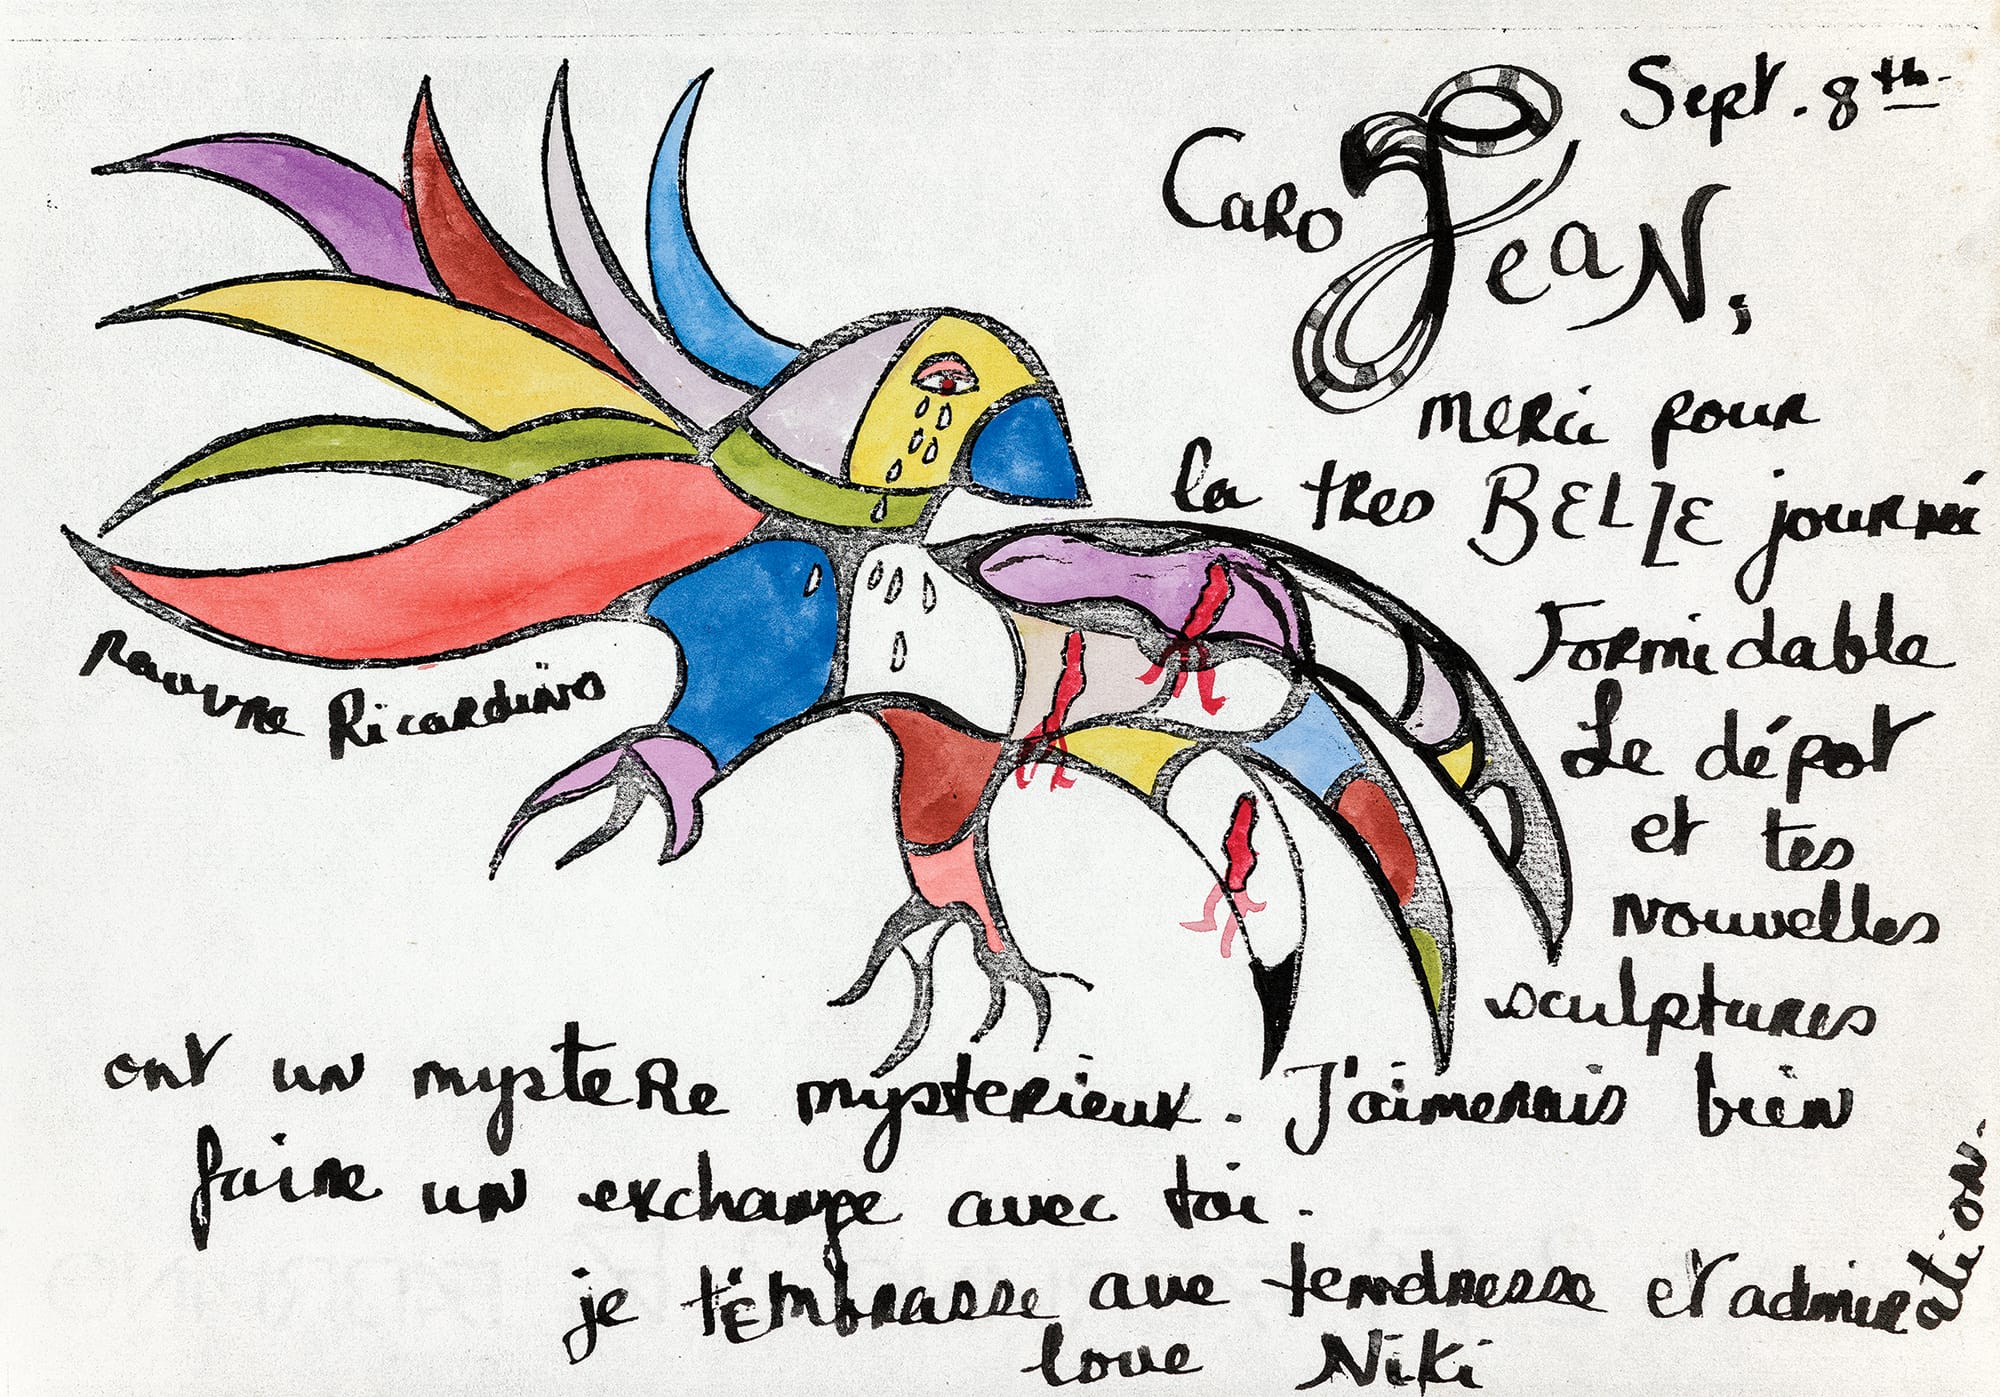 Sept. 8th.
Caro Jean,
merci pour
la tres BELLE journé
Formidable
Le dépot
et tes
nouvelles
sculptures
ont un mystere mysterieux. J'aimerais bien
faire un exchange avec toi.
je t'émbrasse ave tendresse et admiration.
love Niki
pauvre Ricardino